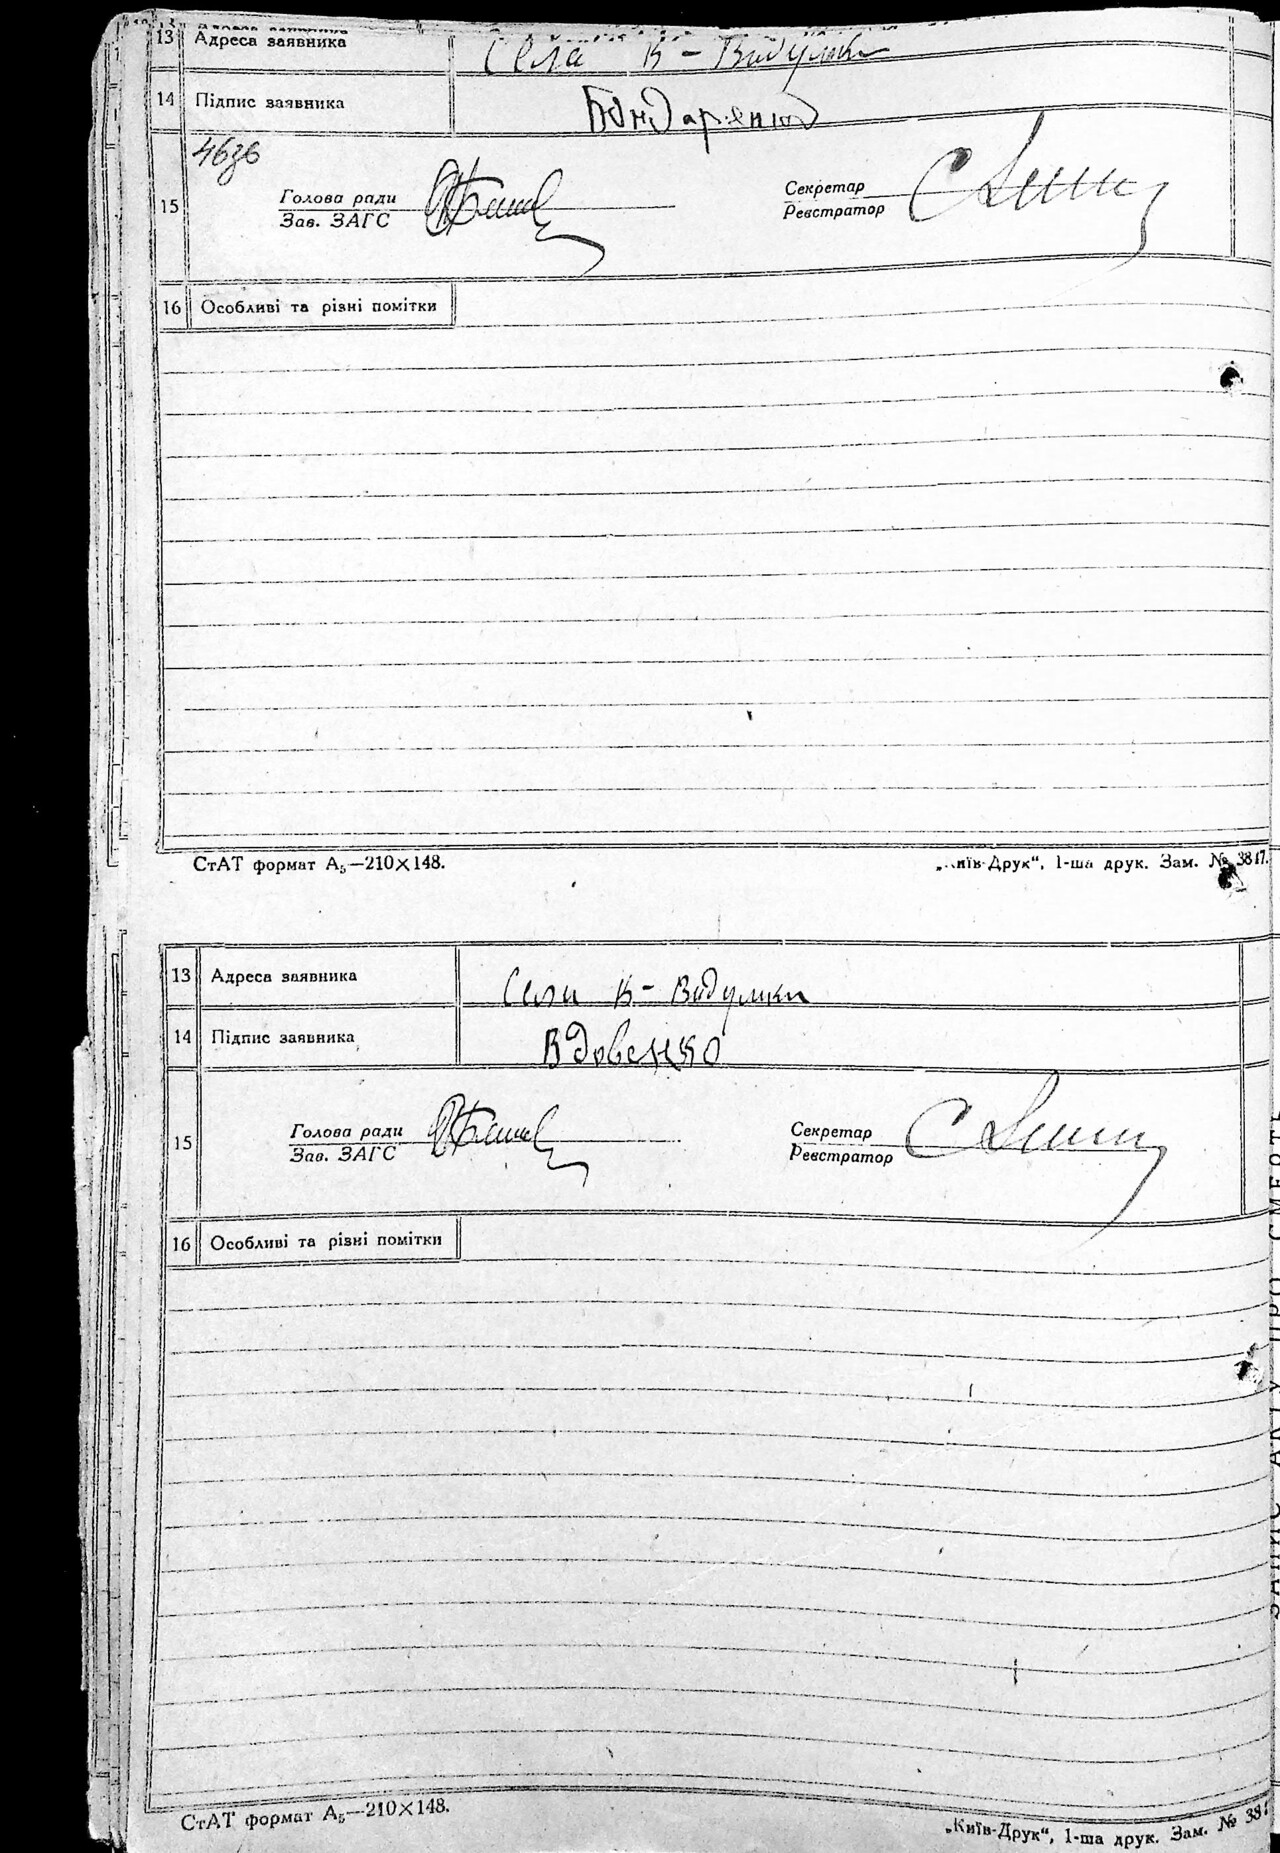 13 Адреса заявника Села В - Видумки
14 Підпис заявника Бондаренко
15 Голова ради Секретар
Зав. ЗАГС Реєстратор
16 Особливі та різні помітки
СтАТ формат А₅—210×148. „Київ-Друк“, 1-ша друк. Зам. № 3817.
13 Адреса заявника Села В - Видумки
14 Підпис заявника Вдовенко
15 Голова ради Секретар
Зав. ЗАГС Реєстратор
16 Особливі та різні помітки
СтАТ формат А₅—210×148. „Київ-Друк“, 1-ша друк. Зам. №
ЗАПИС АКТУ ПРО СМЕРТЬ